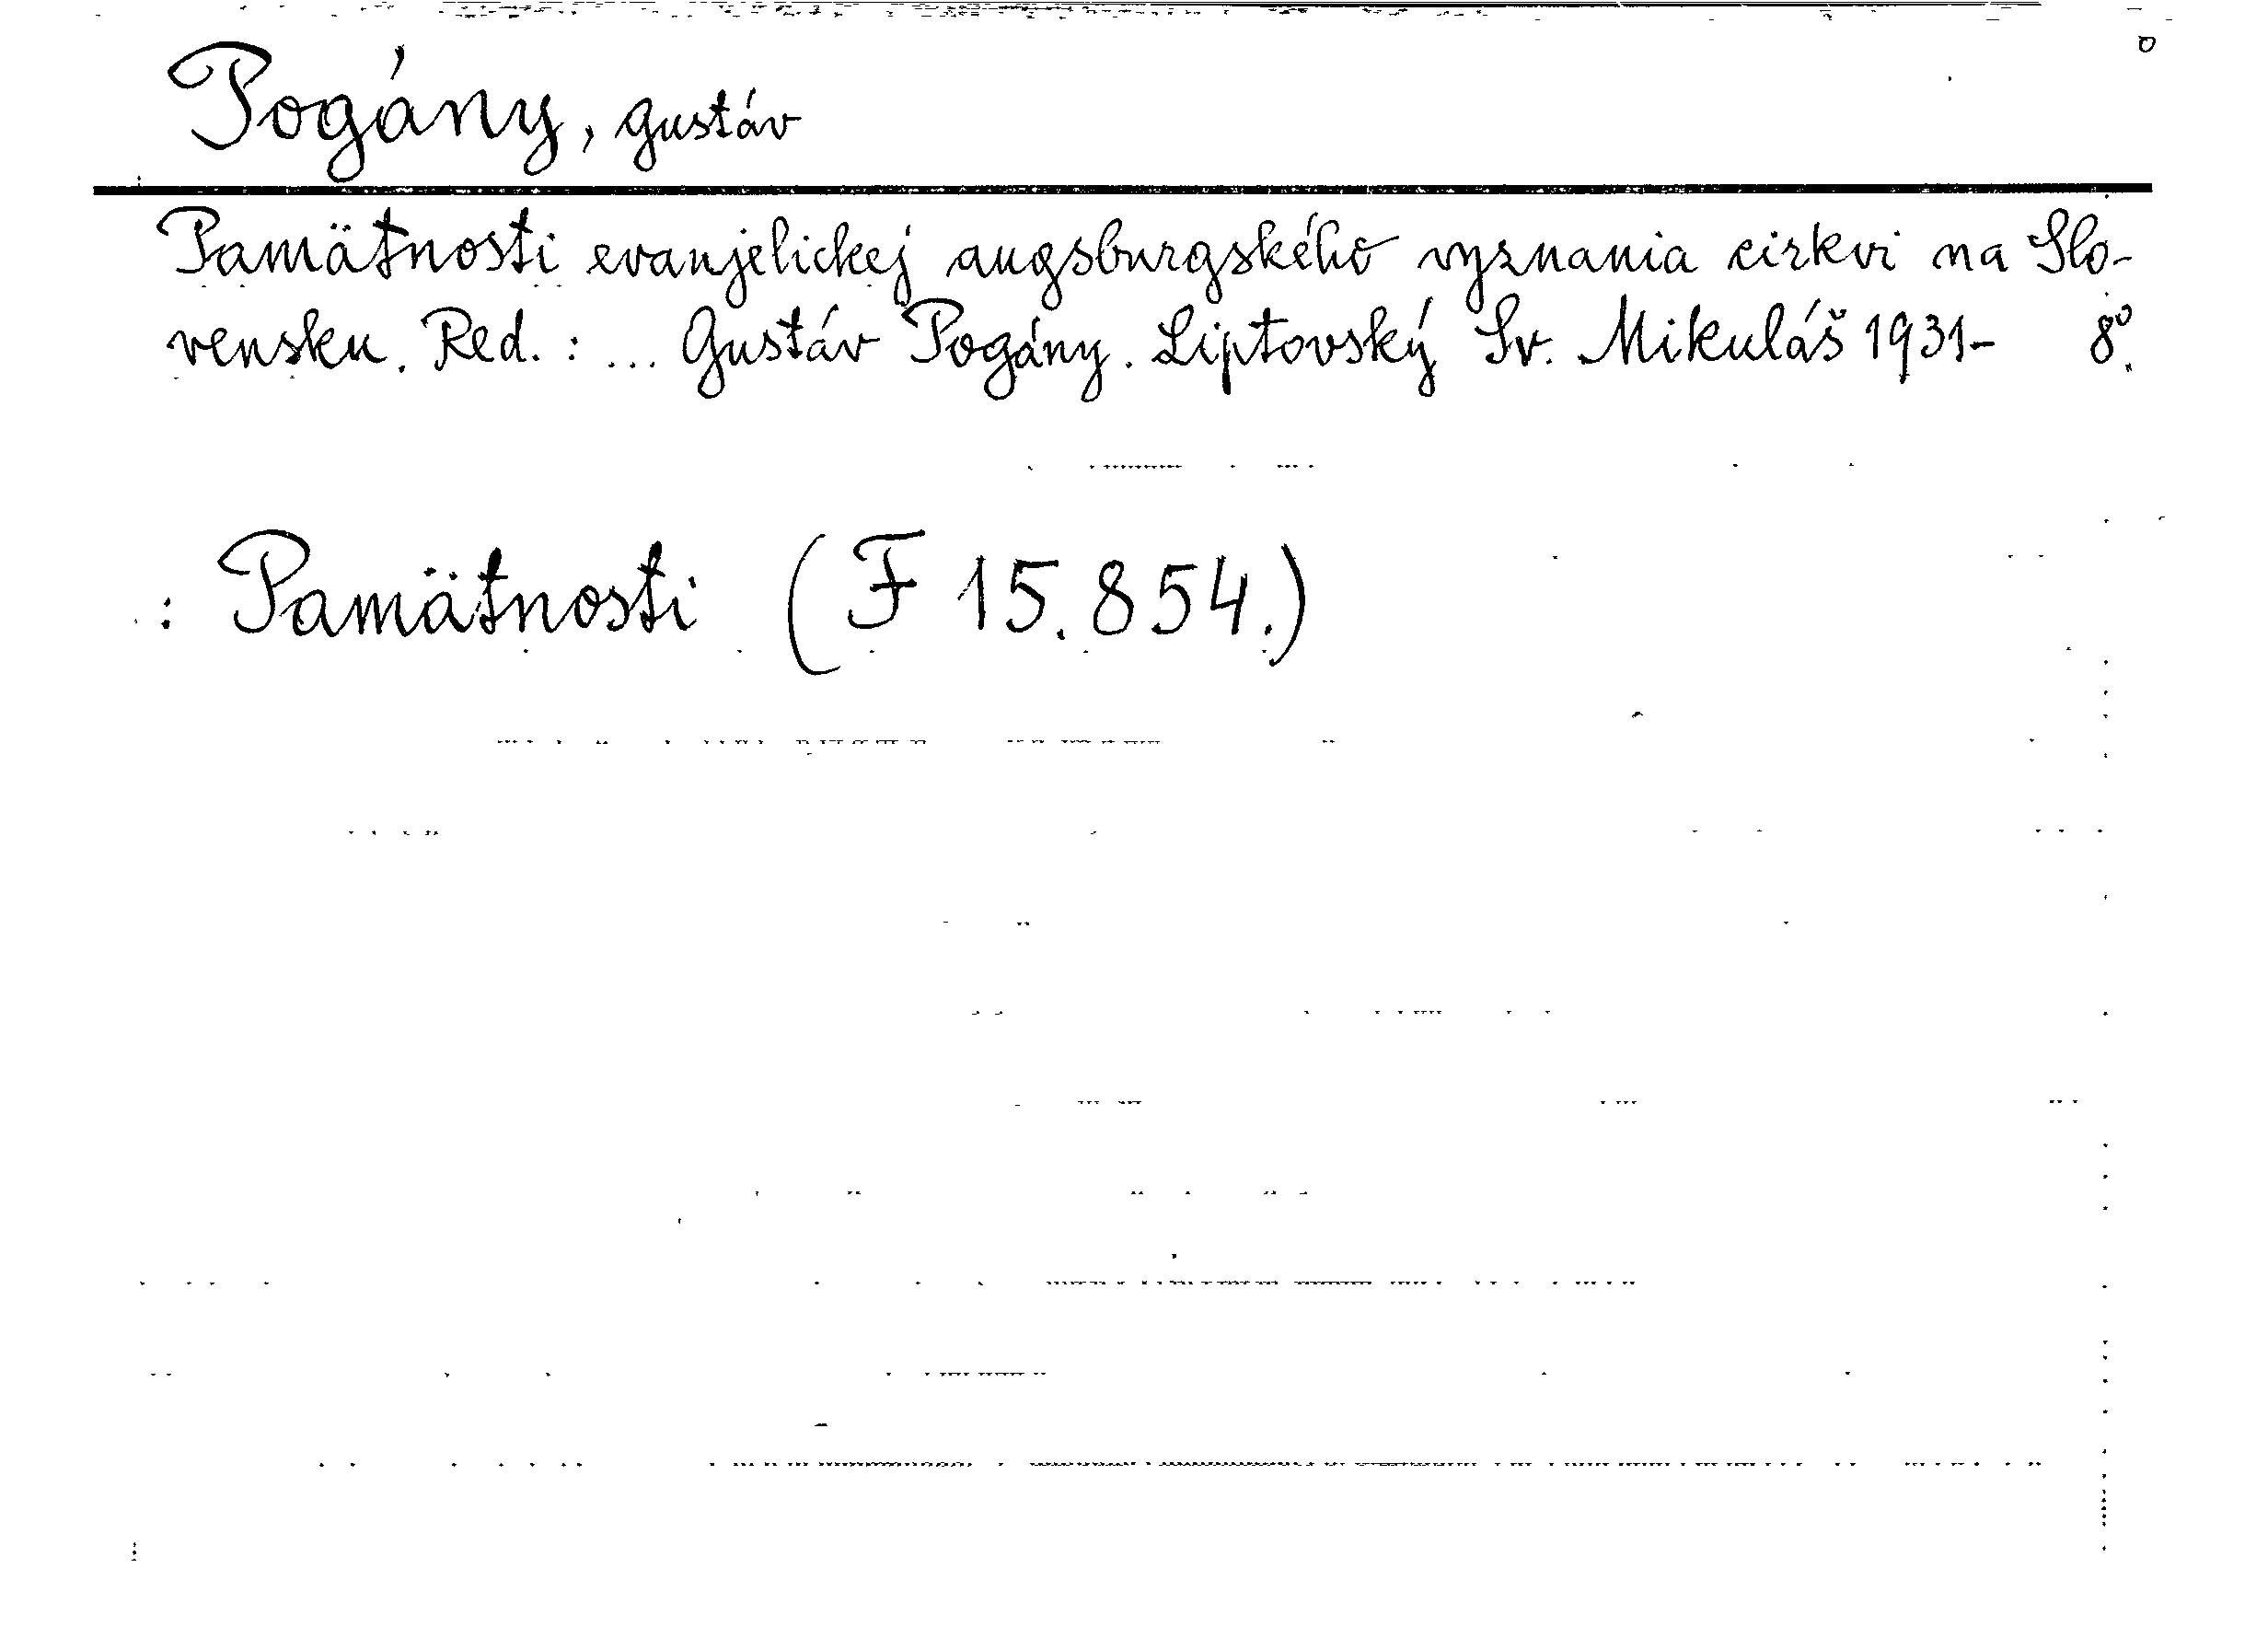 Pogány, Gustáv
Pamätnosti evanjelickej augsburgského vyznania cirkvi na Slo-
vensku. Red. : ... Gustáv Pogány. Liptovský Sv. Mikuláš 1931- 8º.
: Pamätnosti (F 15.854.)